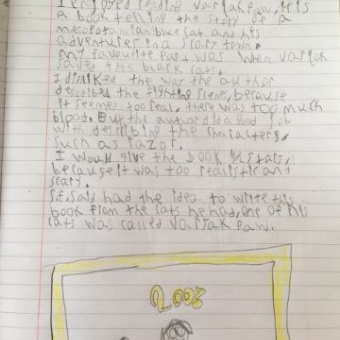 I enjoyed reading Varjak Paw. It is
a book telling the story of a
mesopotamian blue cat and his
adventures in a scary town.
My favourite part was when varjak
saved the black cat.
I disliked the way the author
described the fighting scene, because
it seemes too real, there was too much
blood. the author did a good job
with describing the characters
such as razor.
I would give the book stars,
because it was too realistic and
scary.
S.f. said had the idea to write this
book from the cats he had, one of his
cats was called Varjak Paw.